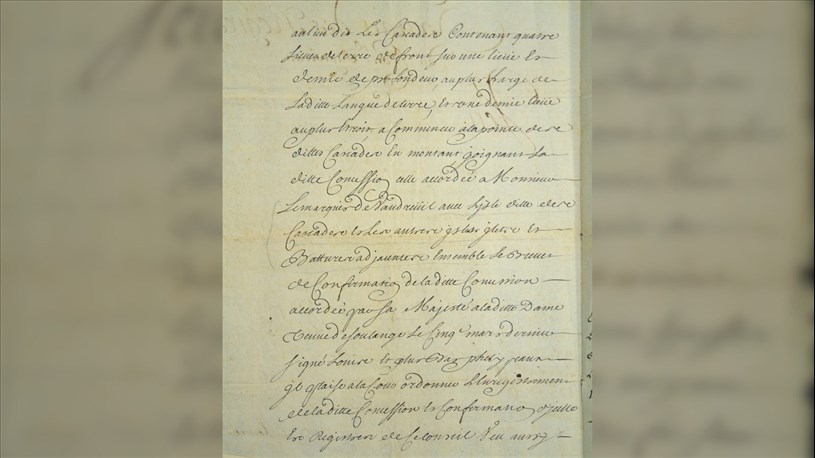 au lieu dit Les Cascades Contenant quatre
Lieues de terre de front sur une lieue Et
demie de profondeur au plus Large de
Laditte Langue de terre, Et une demie lieue
au plus Etroit, a Commencer a la pointe des
dittes Cascades En montant, joignant La
ditte Concession, celle accordée a Monsieur
Le marquis De Vaudreuil avec L'isle ditte des
Cascades Et Les autres isles, islets Et
Batturës adjacentes Ensemble Le Brevet
de Confirmation de la ditte Concession
accordée par Sa Majesté a laditte Dame
Veuve de soulange Le Cinq mars dernier
signé Louis Et plus bas phelypeaux
il plaise a la Cour ordonner L'Enregistrement
de laditte Concession Et Confirmation
Es Registres de Ce Conseil Veu aussy